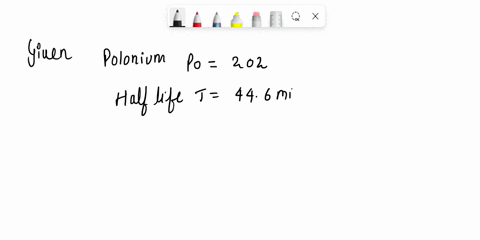 Given Polonium Po = 202
Half life T = 44.6 mi